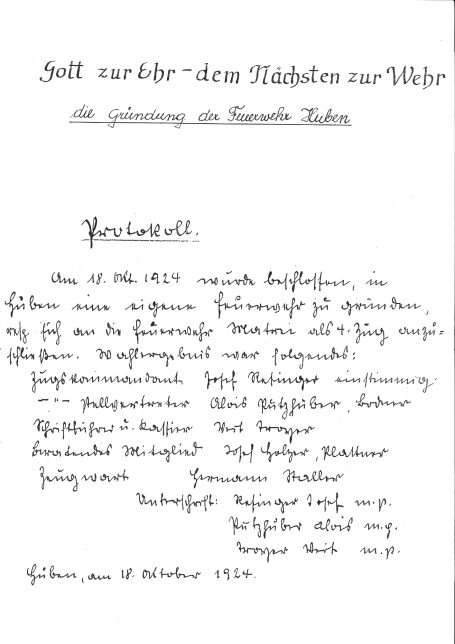 Gott zur Ehr – dem Nächsten zur Wehr
die Gründung der Feuerwehr Huben
Protokoll.
Am 18. Okt. 1924 wurde beschlossen, in
Huben eine eigene Feuerwehr zu gründen,
resp. sich an die Feuerwehr Matrei als 4. Zug anzu=
schließen. Wahlergebnis war folgendes:
Zugskommandant Josef Resinger einstimmig
–"– Stellvertreter Alois Putzhuber, Bodner
Schriftführer u. Kassier Veit Troyer
Beratendes Mitglied Josef Holzer, Plattner
Zeugwart Hermann Staller
Unterschrift: Resinger Josef m.p.
Putzhuber Alois m.p.
Troyer Veit m.p.
Huben, am 18. Oktober 1924.